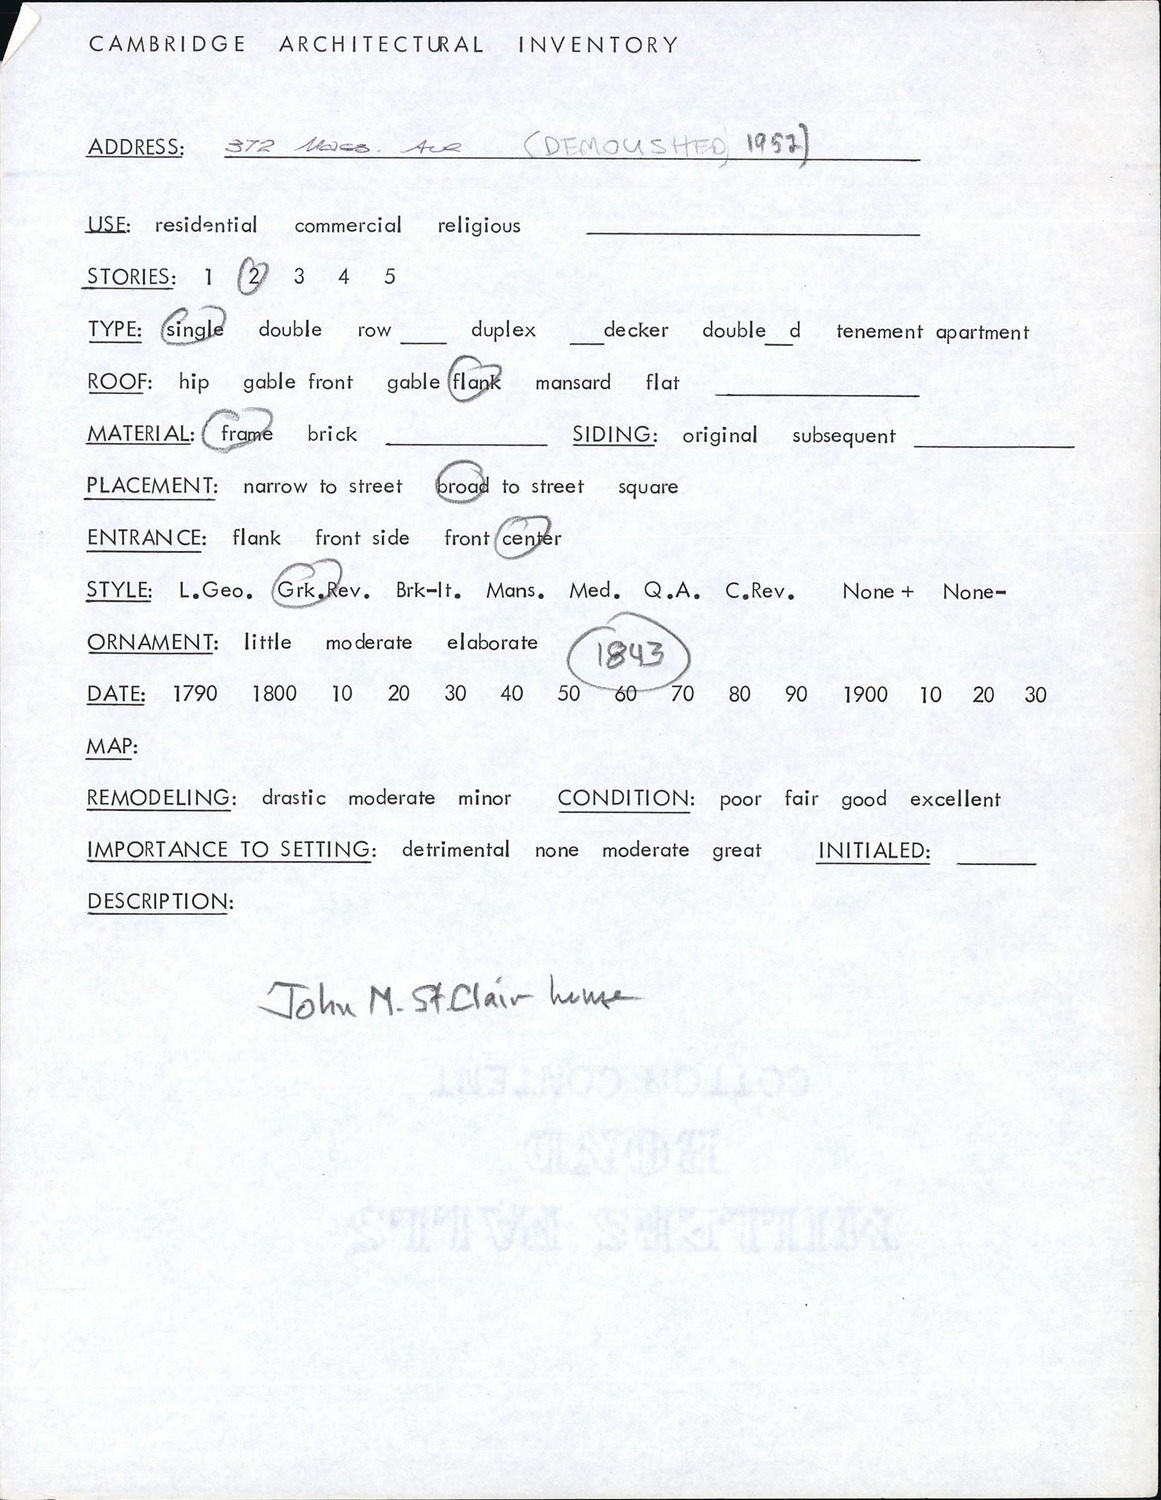 CAMBRIDGE ARCHITECTURAL INVENTORY
ADDRESS: 372 Mass. Ave (DEMOLISHED 1957)
USE: residential commercial religious
STORIES: 1 2 3 4 5
TYPE: single double row ___ duplex ___decker double__d tenement apartment
ROOF: hip gable front gable flank mansard flat
MATERIAL: frame brick SIDING: original subsequent
PLACEMENT: narrow to street broad to street square
ENTRANCE: flank front side front center
STYLE: L.Geo. Grk.Rev. Brk-It. Mans. Med. Q.A. C.Rev. None + None-
ORNAMENT: little moderate elaborate 1843
DATE: 1790 1800 10 20 30 40 50 60 70 80 90 1900 10 20 30
MAP:
REMODELING: drastic moderate minor CONDITION: poor fair good excellent
IMPORTANCE TO SETTING: detrimental none moderate great INITIALED:
DESCRIPTION:
John M. St.Clair house
COTTON CONTENT
BOND
MILLERS FALLS